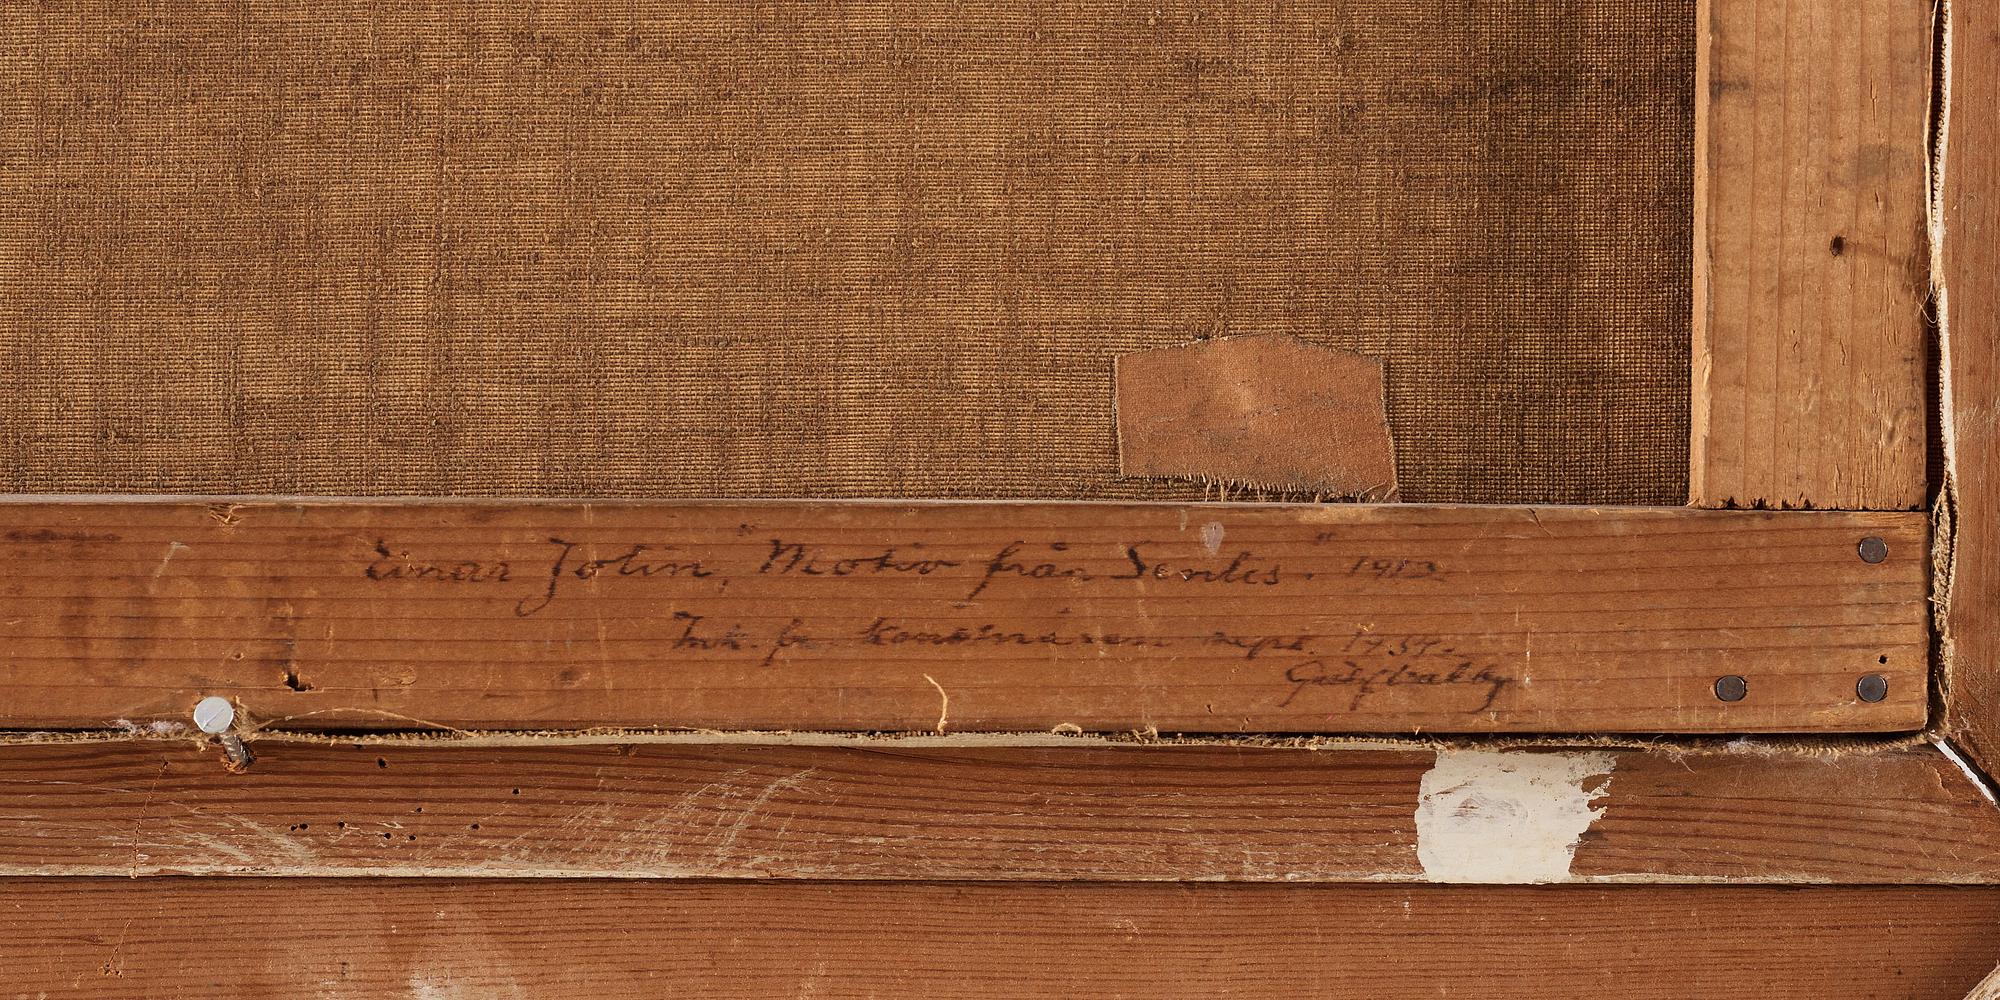 Einar Jolin, "Motiv från Senlis". 1913.
Ink. fr. konstnären sept. 1954.